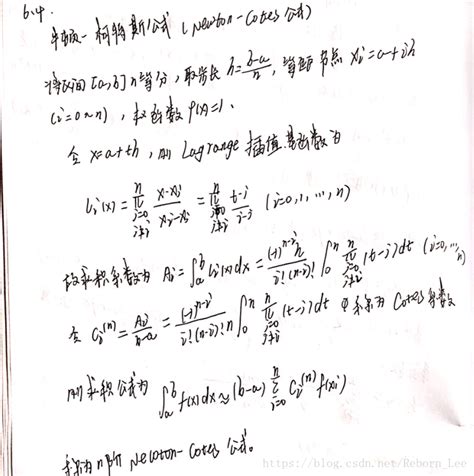 6.4.
牛顿-柯特斯公式 (Newton-Cotes公式)
将区间[a,b] n等分, 取步长 h=\frac{b-a}{n}, 等距节点 x_i=a+ih
(i=0~n), 权函数 ρ(x)=1.
令 x=a+th, 则 Lagrange 插值基函数为
l_i(x)=\prod_{j=0, j≠i}^{n}\frac{x-x_j}{x_i-x_j}=\prod_{j=0, j≠i}^{n}\frac{t-j}{i-j} (i=0,1,…,n)
故求积系数为 A_i=\int_a^b l_i(x)dx=\frac{(-1)^{n-i}h}{i!(n-i)!}\int_0^n\prod_{j=0, j≠i}^{n}(t-j)dt (i=0,…,n)
令 C_i^{(n)}=\frac{A_i}{b-a}=\frac{(-1)^{n-i}}{i!(n-i)!n}\int_0^n\prod_{j=0, j≠i}^{n}(t-j)dt 称为 Cotes 系数
则求积公式为 \int_a^b f(x)dx≈(b-a)\sum_{i=0}^{n}C_i^{(n)}f(x_i)
称为n阶 Newton-Cotes 公式。
https://blog.csdn.net/Reborn_Lee